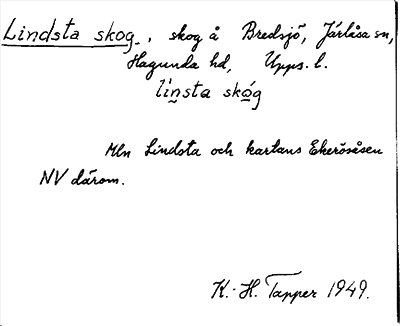 Lindsta skog., skog å Bredsjö, Järlåsa sn,
Hagunda hd, Upps. l.
li̍n̲sta sko̲̍g
Mln Lindsta och kartans Ekeråsåsen
NV därom.
K.-H. Tapper 1949.